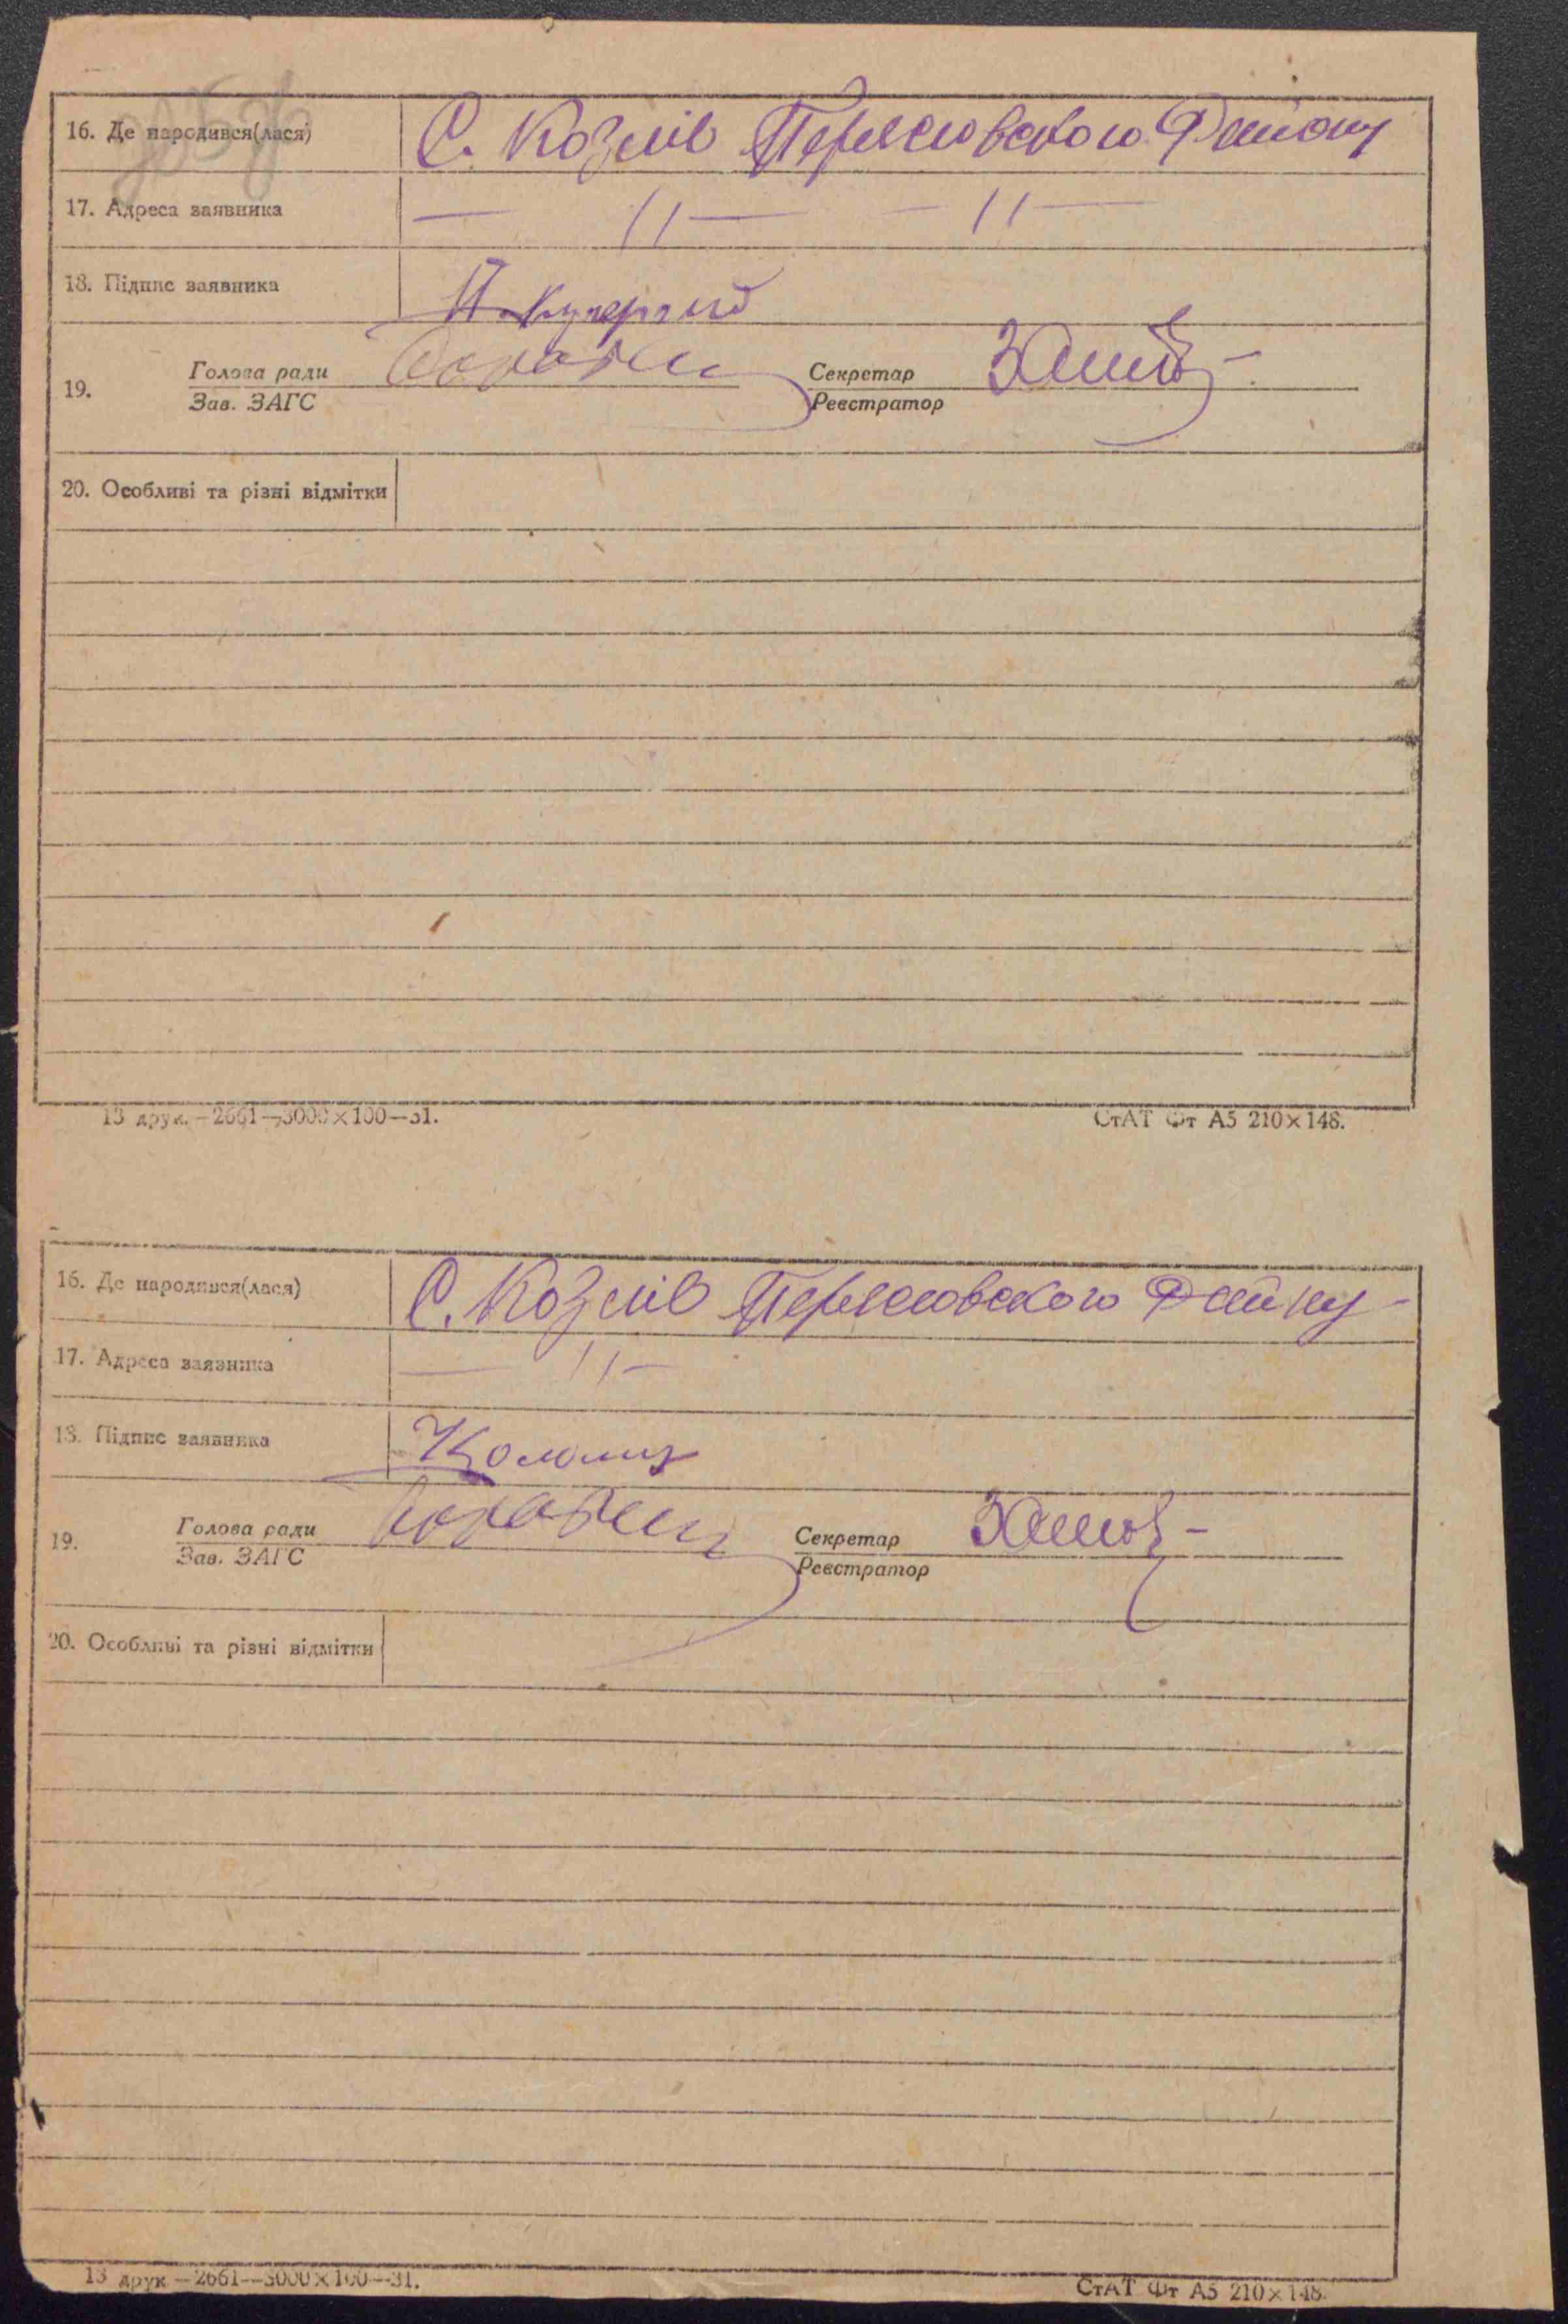 16. Де народився(лася) С. Козлів Переяславского Району
17. Адреса заявника — 11 — — 11 —
18. Підпис заявника
19. Голова ради Секретар
Зав. ЗАГС Реєстратор
20. Особливі та різні відмітки
13 друк. —2661—3000×100—31. СтАТ Фт А5 210×148.
16. Де народився(лася) С. Козлів Переяславского Району
17. Адреса заявника — 11 —
18. Підпис заявника
19. Голова ради Секретар
Зав. ЗАГС Реєстратор
20. Особливі та різні відмітки
13 друк —2661—3000×100—31. СтАТ Фт А5 210×148.